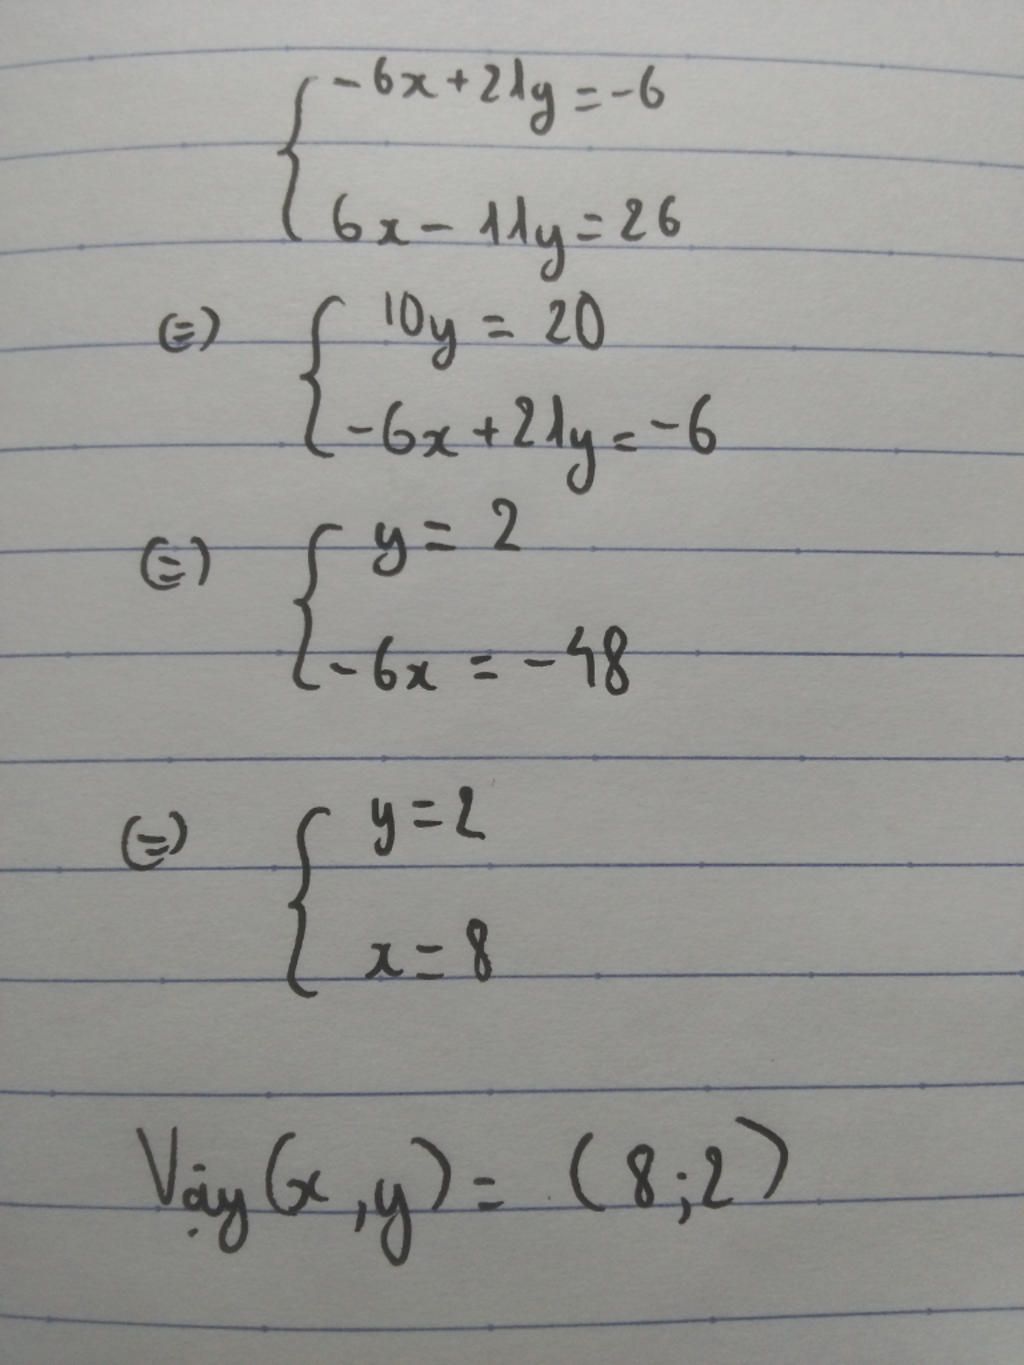 { -6x + 21y = -6
6x - 11y = 26
(=) { 10y = 20
-6x + 21y = -6
(=) { y = 2
-6x = -48
(=) { y = 2
x = 8
Vậy (x, y) = (8; 2)